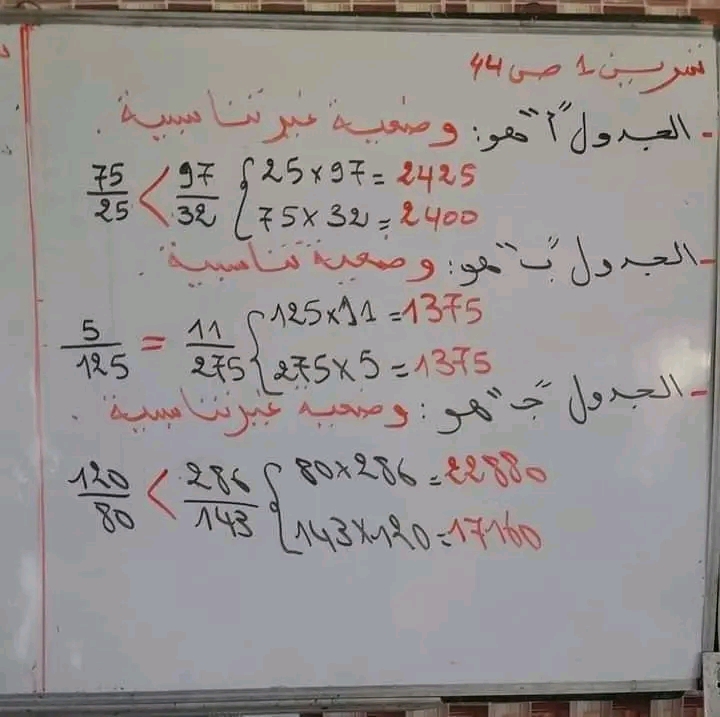 تمرين 1 ص 44
- الجدول "أ" هو: وضعية غير تناسبية.
75/25 < 97/32 { 25×97=2425
75×32=2400
- الجدول "ب" هو: وضعية تناسبية.
5/125 = 11/275 { 125×11=1375
275×5=1375
- الجدول "ج" هو: وضعية غير تناسبية.
120/80 < 286/143 { 80×286=22880
143×120=17160